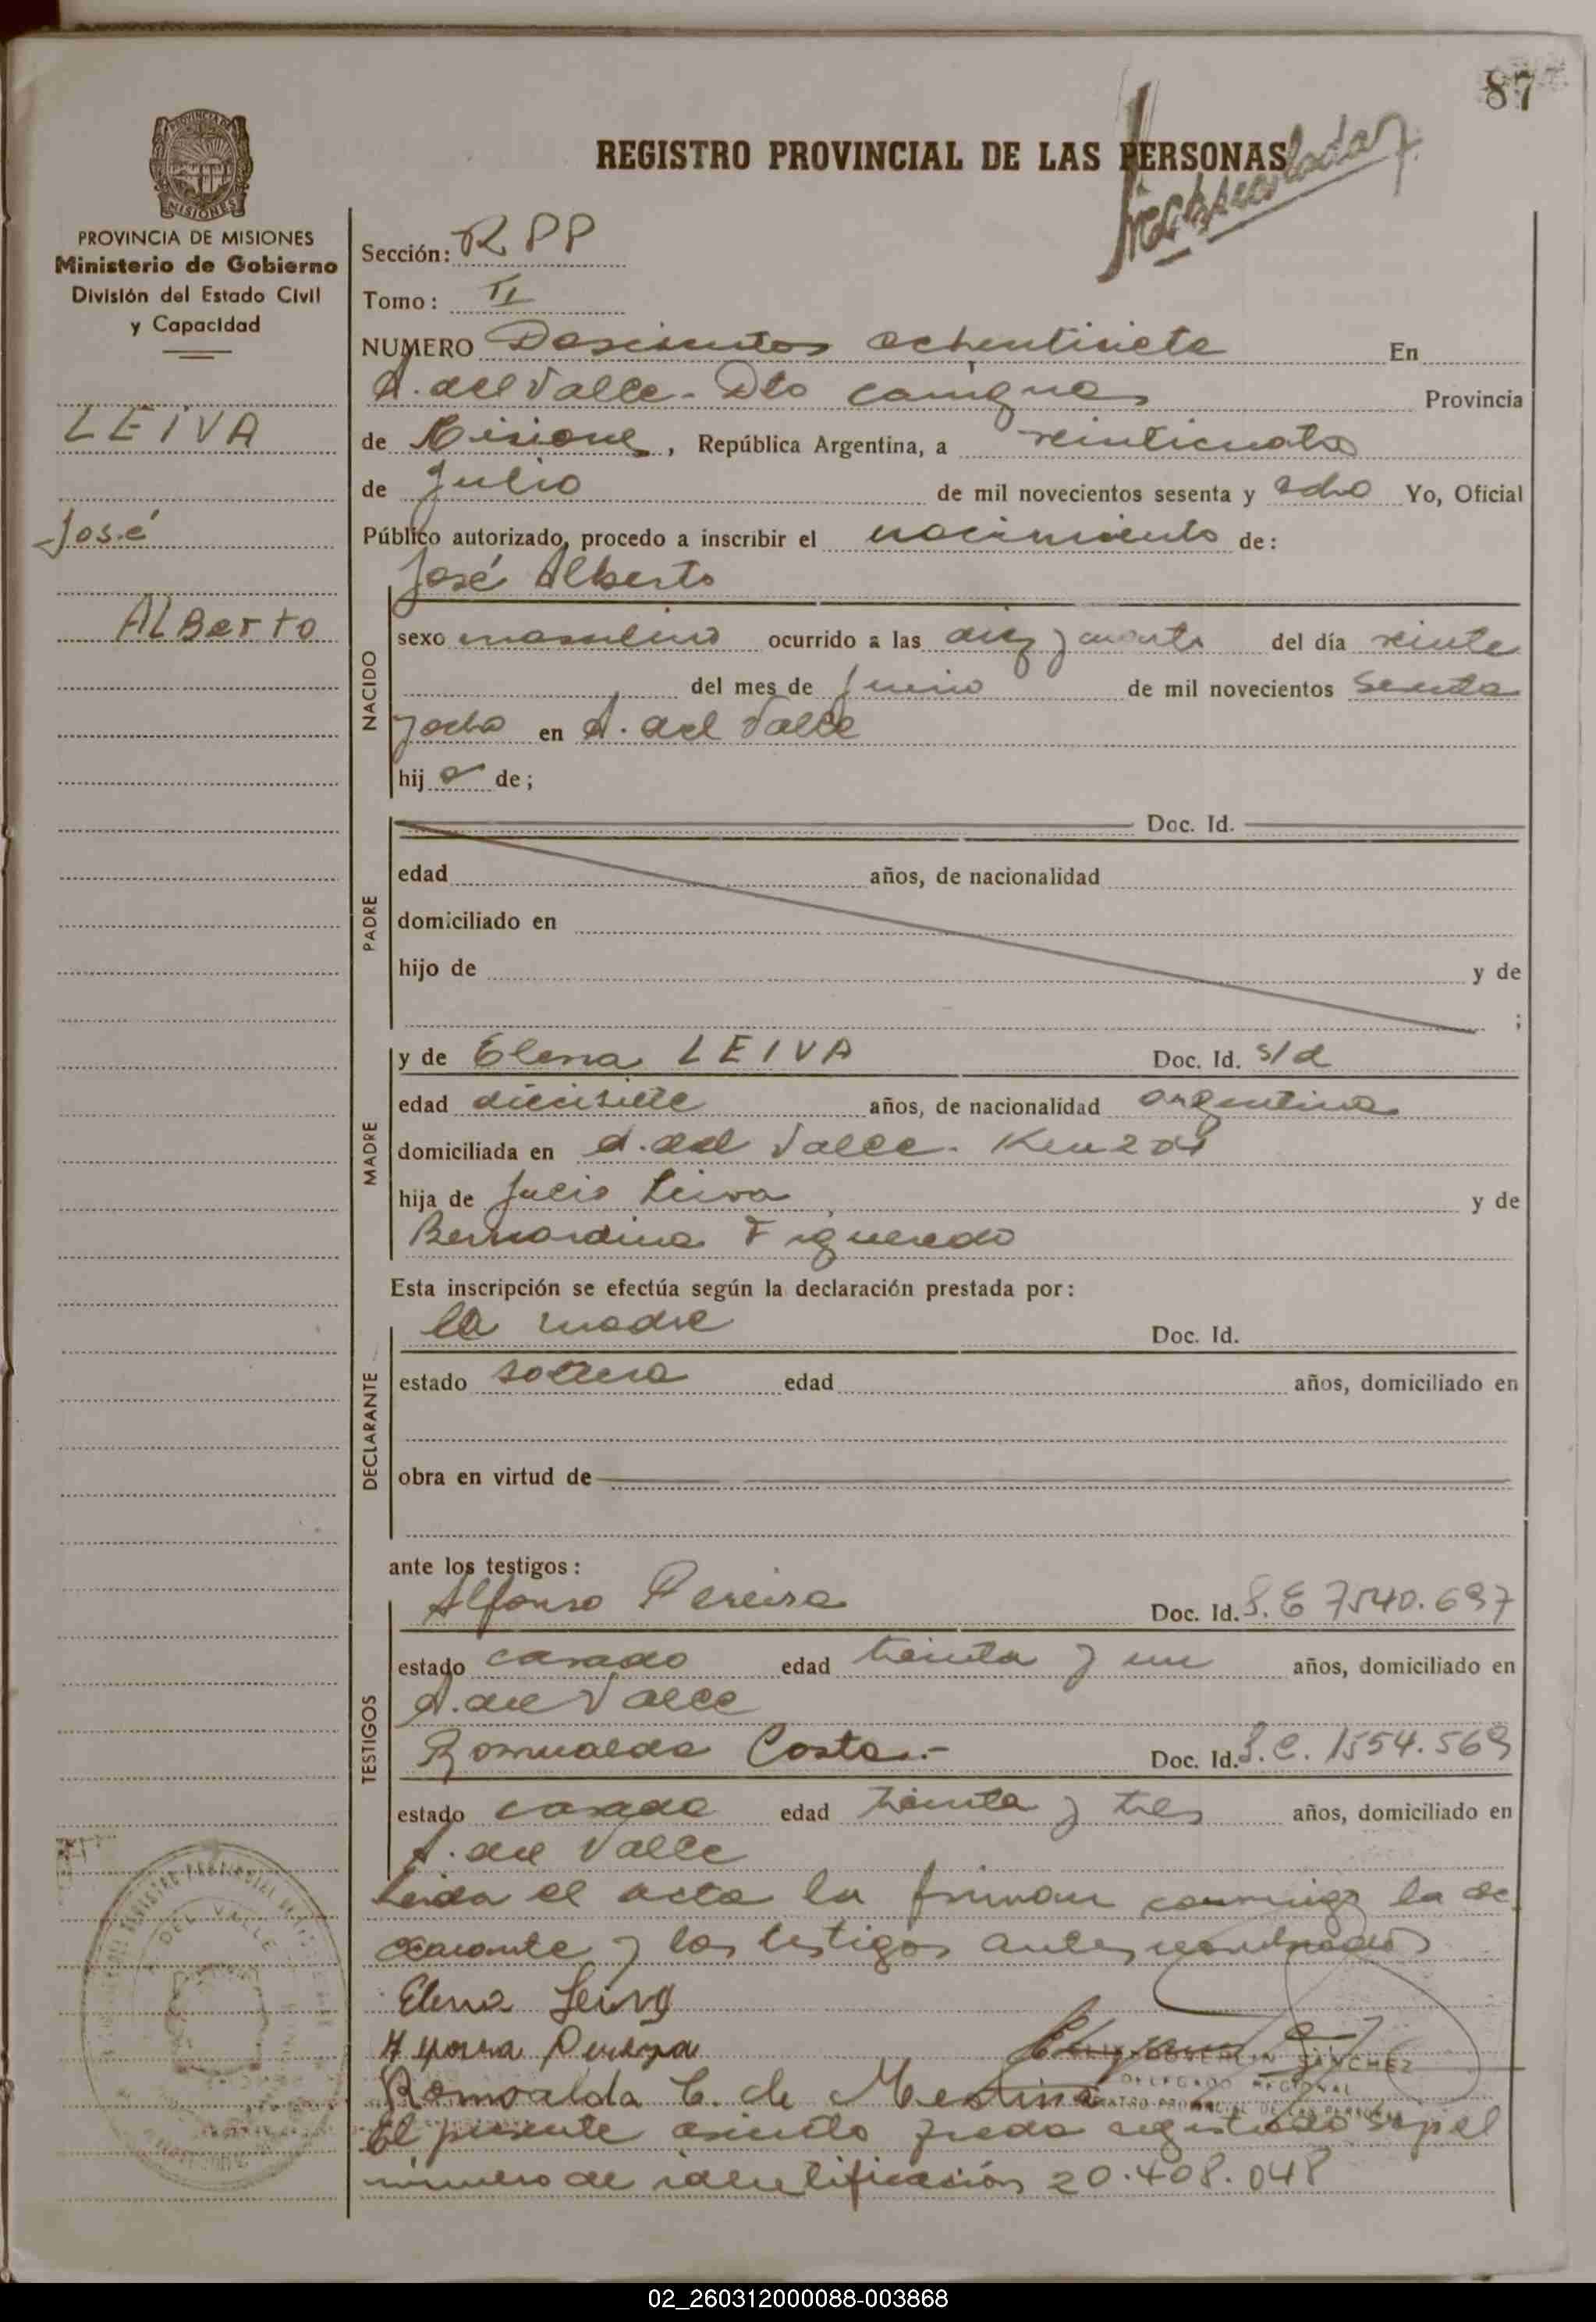 87
REGISTRO PROVINCIAL DE LAS PERSONAS
MISIONES
PROVINCIA DE MISIONES
Ministerio de Gobierno
División del Estado Civil
y Capacidad
LEIVA
José
ALBerto
Sección: RPP
Tomo: II
NUMERO Doscientos ochentisiete En
A. del Valle - Dto Cainguas Provincia
de Misiones, República Argentina, a veinticuatro
de Julio de mil novecientos sesenta y ocho Yo, Oficial
Público autorizado, procedo a inscribir el nacimiento de:
José Alberto
NACIDO
sexo masculino ocurrido a las diez y cuarto del día veinte
del mes de Junio de mil novecientos sesenta
y ocho en A. del Valle
hij o de;
PADRE
Doc. Id.
edad años, de nacionalidad
domiciliado en
hijo de y de
;
MADRE
y de Elena LEIVA Doc. Id. s/d
edad diecisiete años, de nacionalidad argentina
domiciliada en A. del Valle - Km 208
hija de Julio Leiva y de
Bernardina Figueredo
Esta inscripción se efectúa según la declaración prestada por:
DECLARANTE
la madre Doc. Id.
estado soltera edad años, domiciliado en
obra en virtud de
ante los testigos:
TESTIGOS
Alfonso Pereira Doc. Id. L.E 7540.697
estado casado edad treinta y un años, domiciliado en
A. del Valle
Romualda Costa.- Doc. Id. L.C. 1554.569
estado casada edad treinta y tres años, domiciliado en
A. del Valle
Leida el acta la firman conmigo la de
clarante y los testigos antes nombrados
Elena Leiva
Romoalda C. de Mestina
SANCHEZ
DELEGADO REGIONAL
DEL VALLE
El presente asiento queda registrado
número de identificación 20.408.048
02_260312000088-003868